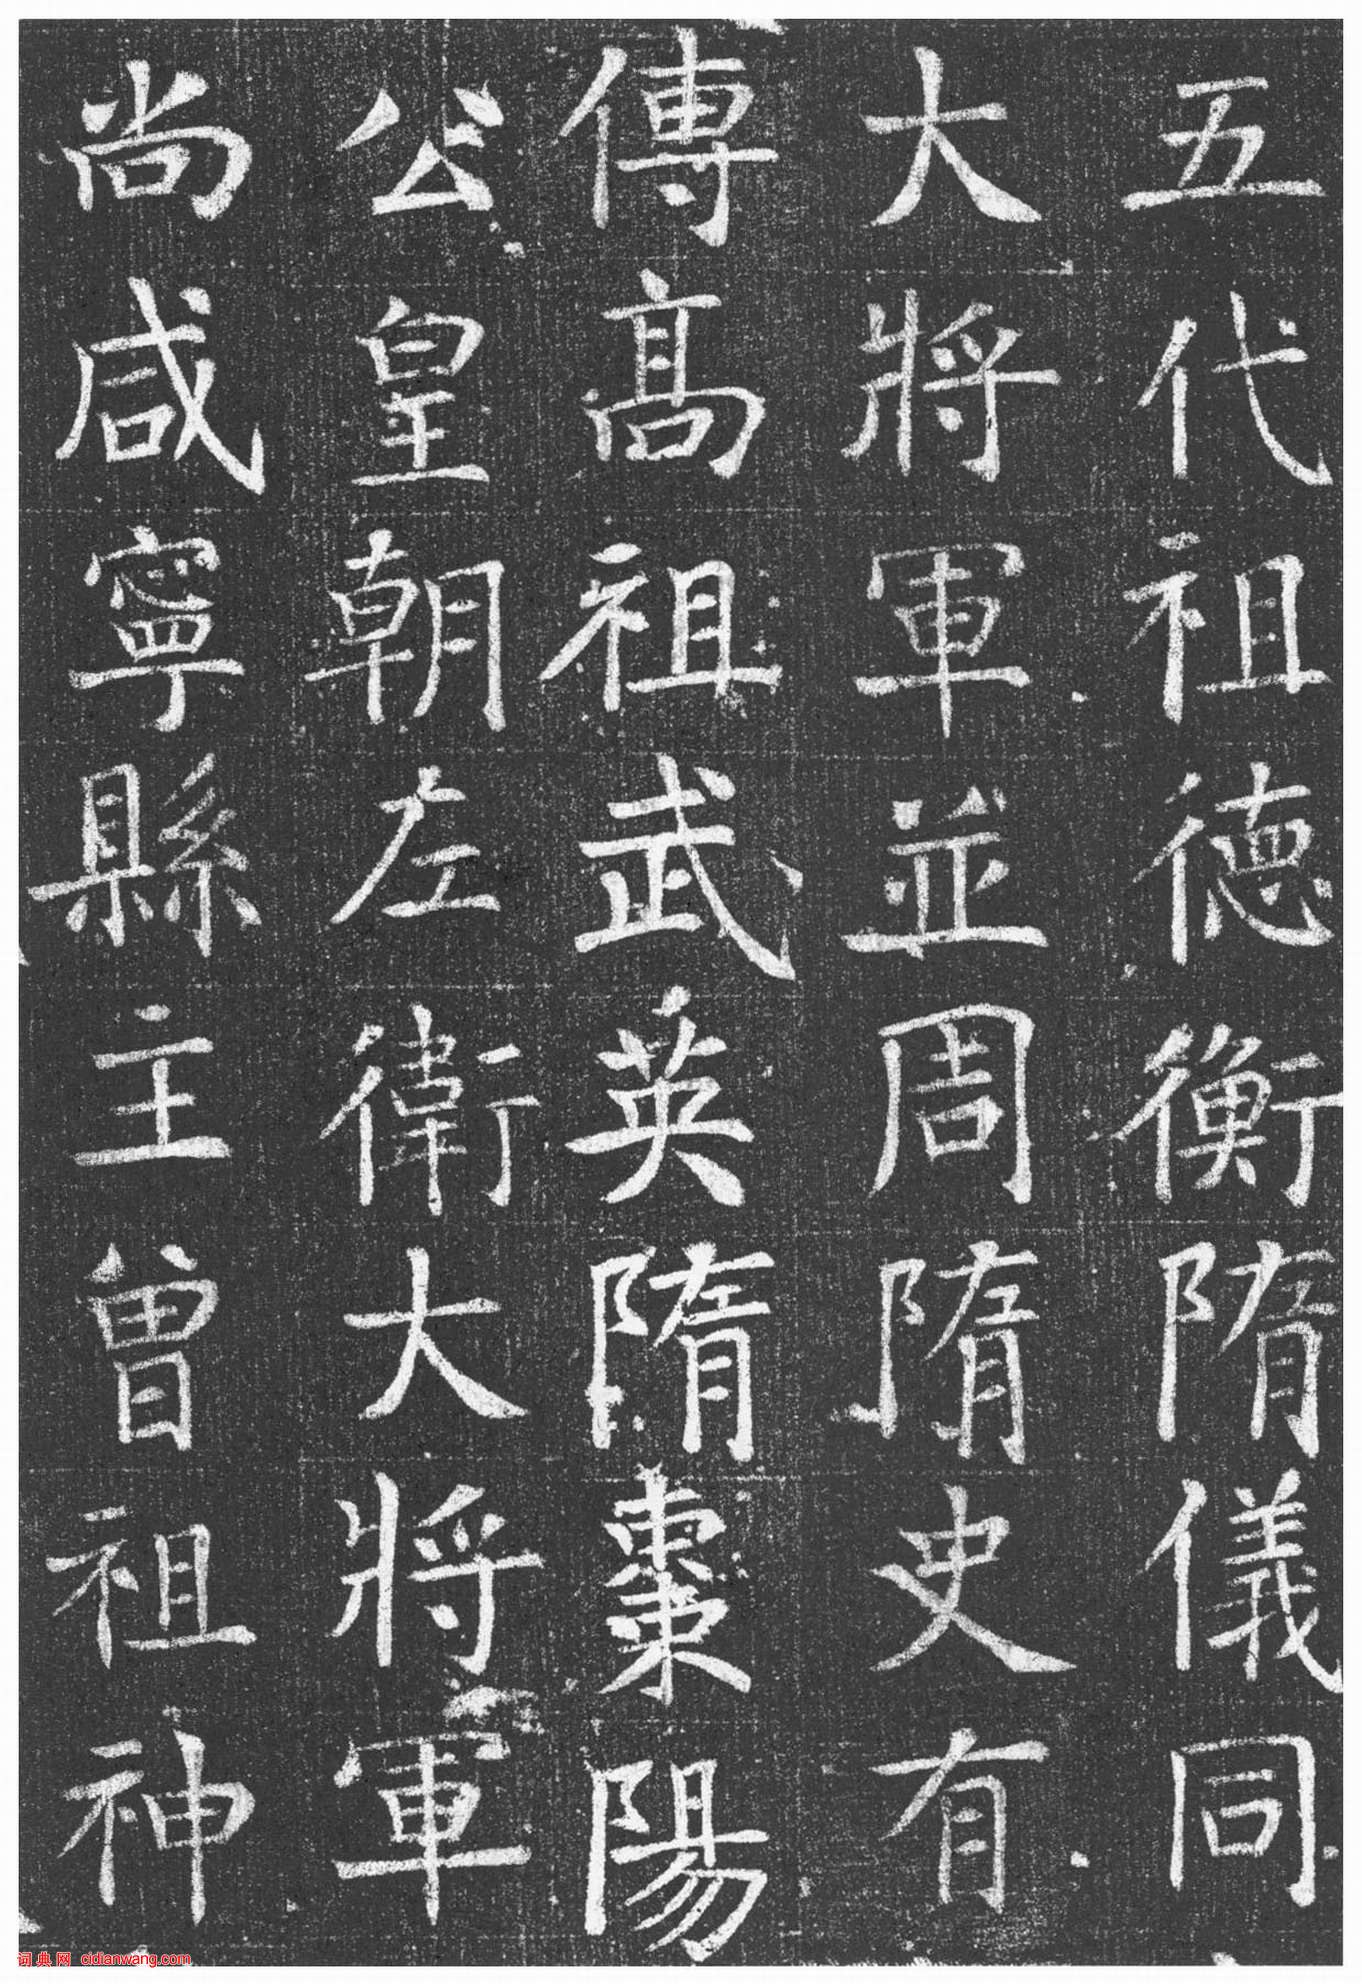 五代祖德衡隋儀同
大將軍並周隋史有
傳高祖武英隋棗陽
公皇朝左衛大將軍
尚咸寧縣主曾祖神
词典网 cidianwang.com